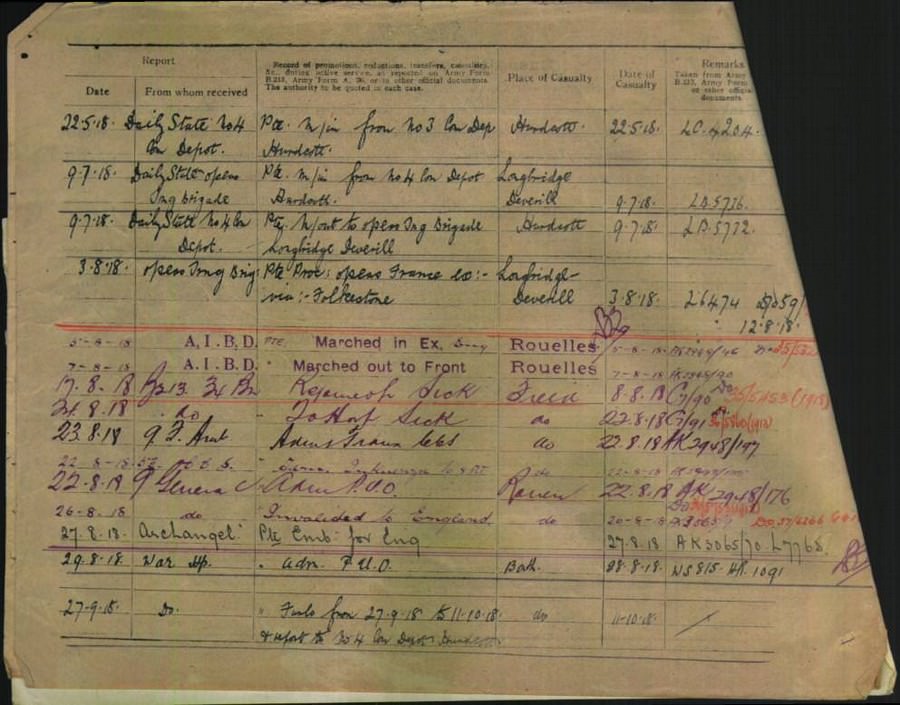 Report
Record of promotions, reductions, transfers, casualties, &c., during active service, as reported on Army Form B.213, Army Form A. 36, or in other official documents. The authority to be quoted in each case.
Place of Casualty
Date of Casualty
Remarks
Taken from Army
B.213, Army Form
or other official
documents.
Date
From whom received
22.5.18. Daily State No 4 Pte. M/in from No 3 Con Dep Hurdcott. 22.5.18. LD.4204.
Con Depot. Hurdcott.
9.7.18. Daily State opers Pte. M/in from No 4 Con Depot Longbridge
Tng Brigade Hurdcott. Deverill 9.7.18. LD.5726.
9.7.18. Daily State No 4 Con Pte. M/out to opers Tng Brigade Hurdcott 9.7.18. LD.5722.
Depot. Longbridge Deverill
3.8.18. opers Trng Brig: Pte Proc: opers France ex:- Longbridge-
via:- Folkestone Deverill 3.8.18. L6474
12.8.18.
5-8-18 A.I.B.D. PTE. Marched in Ex. Rouelles 5-8-18
7-8-18 A.I.B.D. " Marched out to Front Rouelles 7-8-18
17.8.18 B213 34 Bn Rejoined Sick Field 8.8.18 G/90
24.8.18 do To Hosp Sick do 22.8.18 G/91
23.8.18 9 F. Amb do 22.8.18 AK 2948/197
22-8-18 22-8-18
22.8.18 9 General Adm P.U.O. Rouen 22.8.18 AK 2948/176
26-8-18 do Invalided to England do
27.8.18 Archangel Pte Emb: for Eng 27.8.18 AK3065/70 L7768.
29.8.18 War Hp. " Adm. P.U.O. Bath. 28.8.18. WS815. HR. 1091
27-9-18. Do. " Furlo from 27.9.18 to 11-10.18. do 11-10.18.
& report to No 4 Con Depot Hurdcott.